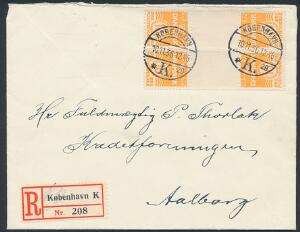 KØBENHAVN
K.
KØBENHAVN
K.
Hr. Fuldmægtig P. Thorlak
Kreditforeningen
Aalborg
R
København K
Nr. 208